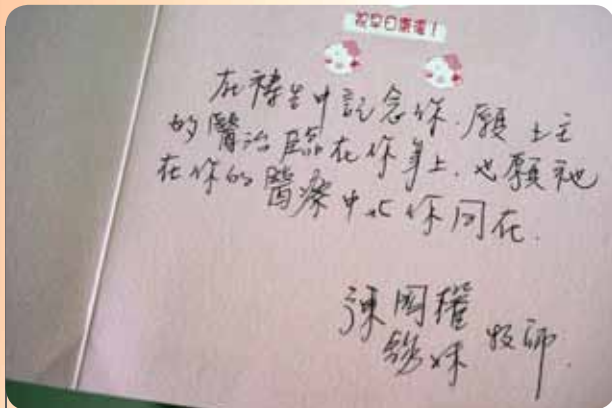 祝早日康復！
在禱告中記念你．願上主
的醫治臨在你身上．也願祂
在你的醫療中與你同在．
陳國權
牧師．